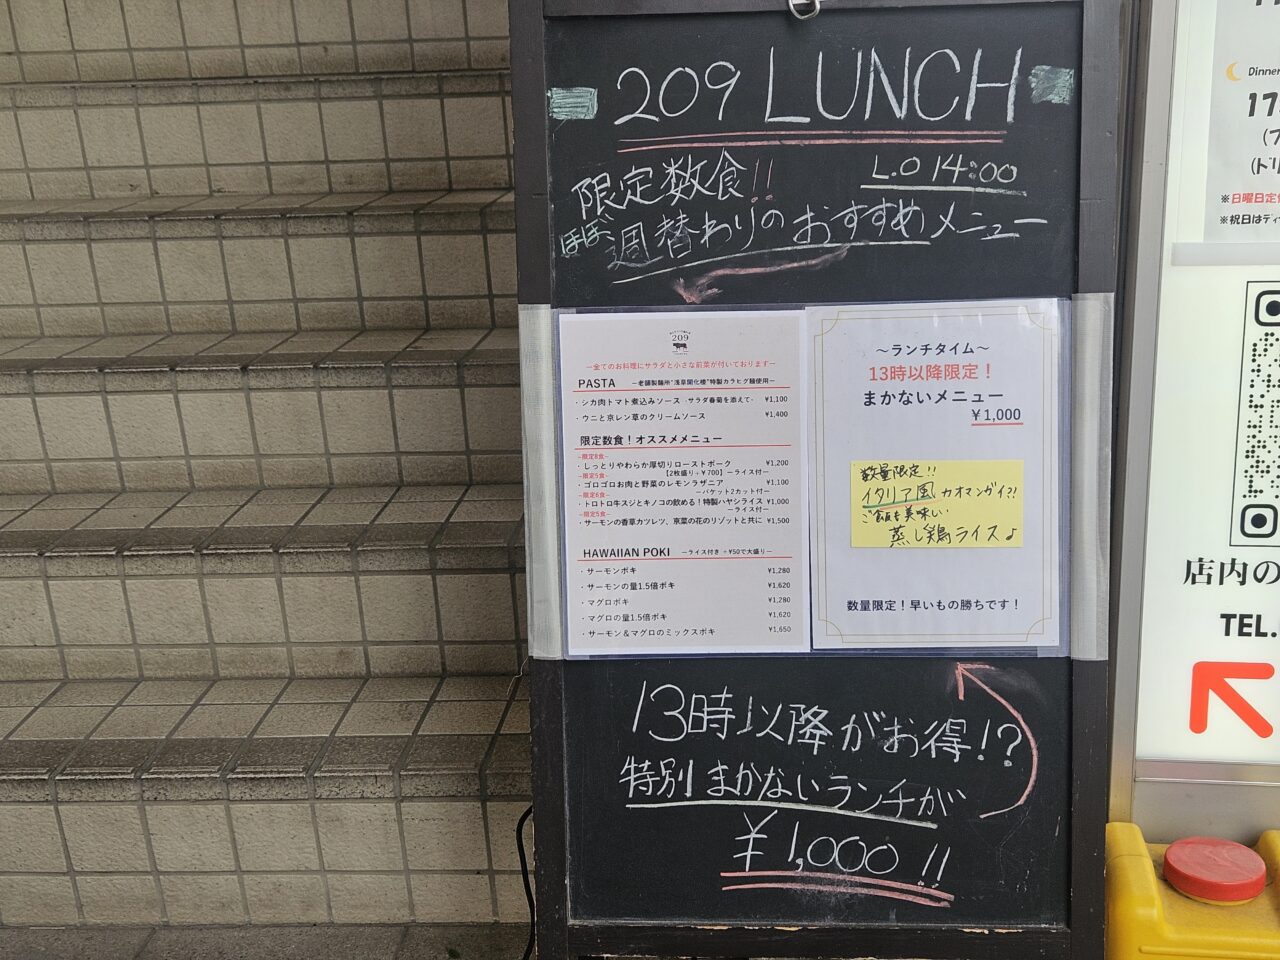 209 LUNCH
限定数食!!
L.O 14:00
ほぼ週替わりのおすすめメニュー
209
ー全てのお料理にサラダと小さな前菜が付いておりますー
PASTA ー老舗製麺所"浅草開化楼"特製カラヒグ麺使用ー
・シカ肉トマト煮込みソース -サラダ春菊を添えて- ¥1,100
・ウニと京レン草のクリームソース ¥1,400
限定数食！オススメメニュー
ー限定8食ー
・しっとりやわらか厚切りローストポーク ¥1,200
【2枚盛り＋¥700】ーライス付ー
ー限定5食ー
・ゴロゴロお肉と野菜のレモンラザニア ¥1,100
ーバケット2カット付ー
ー限定6食ー
・トロトロ牛スジとキノコの飲める！特製ハヤシライス ¥1,000
ーライス付ー
ー限定5食ー
・サーモンの香草カツレツ、京菜の花のリゾットと共に ¥1,500
HAWAIIAN POKI ーライス付き ＋¥50で大盛りー
・サーモンポキ ¥1,280
・サーモンの量1.5倍ポキ ¥1,620
・マグロポキ ¥1,280
・マグロの量1.5倍ポキ ¥1,620
・サーモン＆マグロのミックスポキ ¥1,650
～ランチタイム～
13時以降限定！
まかないメニュー
￥1,000
数量限定!!
イタリア風カオマンガイ?!
ご飯も美味い
蒸し鶏ライス♪
数量限定！早いもの勝ちです！
13時以降がお得!?
特別まかないランチが
¥1,000!!
Dinner
17
※日曜日定休
※祝日はディ
店内の
TEL.